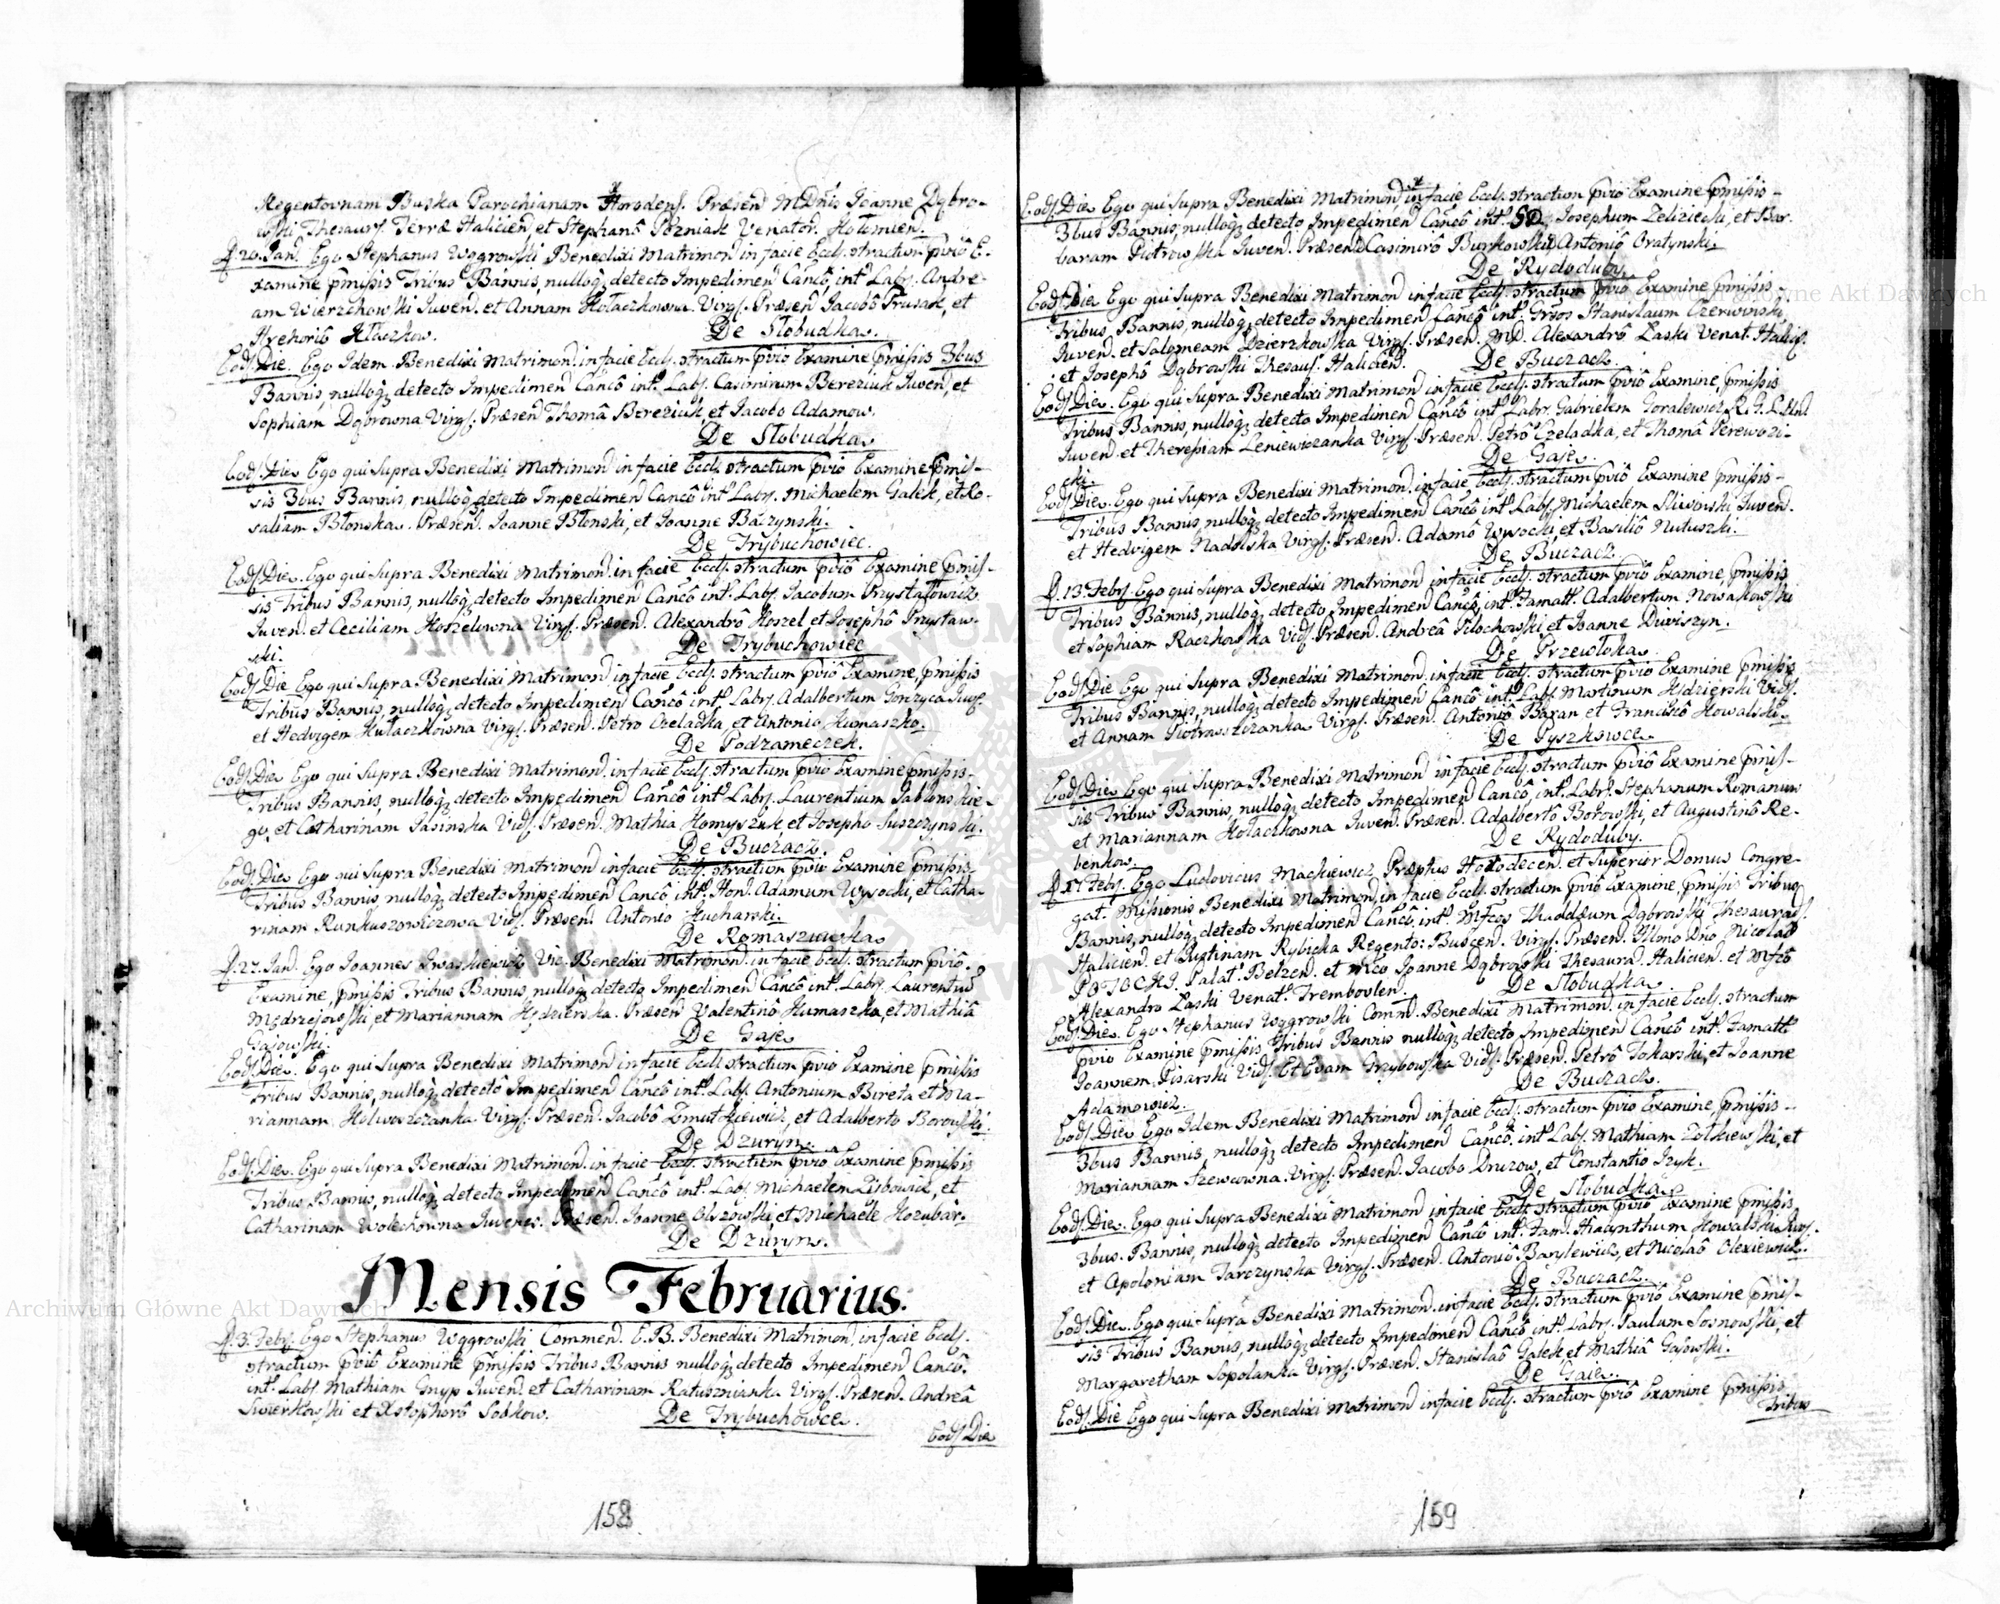 Regentownam Buska Parochianam Horodens. Præsend MDnis Joanne Dąbro-
wski Thesaurs. Terræ Halicien, et Stephanô Pozniak Venator. Kołomien.
D. 20. Jan. Ego Stephanus Węgrowski Benedixi Matrimon in facie Eccls. stractum pviô E-
xamine pmissis Tribus Bannis, nulloq; detecto Impedimen Cancô intr Labs. Andre-
am Wierzchowski Juven. et Annam Hołaczkowna Virgs. Præsen Jacobô Prusak, et
Hrehoriô Kłaczkow. De Słobudka.
Eods. Die. Ego Idem Benedixi Matrimon. in facie Eccls. stractum pviô Examine pmissis 3bus
Bannis, nulloq; detecto Impedimen Cancô intr. Labs. Casimirum Bereziuk Juven, et
Sophiam Dąbrowna Virgs. Præsen Thomâ Bereziuk, et Jacobo Adamow.
De Słobudka.
Eods. Die Ego qui Supra Benedixi Matrimon in facie Eccls. stractum pviô Examine pmis-
sis 3bus Bannis, nulloq; detecto Impedimen Cancô intr Labs. Michaelem Galek, et Ro-
saliam Błonska. Præsen. Joanne Błonski, et Joanne Baczynski.
De Trybuchowiec.
Eods. Die. Ego qui Supra Benedixi Matrimon. in facie Eccls. stractum pviô Examine pmis-
sis Tribus Bannis, nulloq; detecto Impedimen Cancô intr. Labs. Jacobum Przystałowicz
Juven. et Ceciliam Koszelowna Virgs. Præsen. Alexandrô Koszel et Josephô Przystaw-
ski. De Trybuchowiec
Eods. Die Ego qui Supra Benedixi Matrimon in facie Eccls. stractum pviô Examine, pmissis
Tribus Bannis, nulloq; detecto Impedimen Cancô intr. Labs. Adalbertum Gonzyca Juvs.
et Hedvigem Kułaczkowna Virgs. Præsen. Petro Czeladka et Antonio Humaszko.
De Podzameczek.
Eods. Die Ego qui Supra Benedixi Matrimon. in facie Eccls. stractum pviô Examine pmissis-
Tribus Bannis, nulloq; detecto Impedimen Cancô intr Labs. Laurentium Jablonskie-
go, et Catharinam Jasinska Vids. Præsen. Mathia Homyszuk et Josepho Suszczynski.
De Buczacz.
Eods. Die. Ego qui Supra Benedixi Matrimon in facie Eccls. stractum pviô Examine pmissis
Tribus Bannis, nulloq; detecto Impedimen Cancô, intr. Hon. Adamum Wysocki, et Catha-
rinam Runkuszowiczowa Vids. Præsen. Antonio Kucharski.
De Romaszuwka
D. 27. Jan. Ego Joannes Iwaszkiewicz Vic. Benedixi Matrimon. in facie Eccls. stractum pviô.
Examine, pmissis Tribus Bannis, nulloq; detecto Impedimen Cancô intr. Labs. Laurentiû
Mędrzejowski, et Mariannam Hędzierska. Præsen Valentinô Humaszka, et Mathiâ
Gajowski. De Gaje
Eods. Die. Ego qui Supra Benedixi Matrimon in facie Eccls. stractum pviô Examine pmissis
Tribus Bannis, nulloq; detecto Impedimen Cancô intr. Labs. Antonium Bireta et Ma-
riannam Holuwszczanka Virgs. Præsen. Jacobô Smutkiewicz, et Adalberto Borowski.
De Dzuryn.
Eods. Die. Ego qui Supra Benedixi Matrimon. in facie Eccls. stractum pviô Examine pmissis
Tribus Bannis, nulloq; detecto Impedimen Cancô intr. Labs. Michaelem Lisbowicz, et
Catharinam Wolechowna Juvenes. Præsen. Joanne Olszowski, et Michaele Kozubar.
De Dzuryn.
Mensis Februarius.
D. 3. Febrs. Ego Stephanus Węgrowski Commen. E. B. Benedixi Matrimon. in facie Eccls.
stractum pviô Examine pmissis Tribus Bannis nulloq; detecto Impedimen Cancô.
intr. Labs. Mathiam Gnyp Juven et Catharinam Ratusznianka Virgs. Præsen. Andreâ
Swierkowski et Xstophorô Sobkow. De Trybuchowce.
Eods. Die
158
Eods. Die Ego qui Supra Benedixi Matrimon, in facie Eccls. stractum pviô Examine pmissis-
3bus Bannis, nulloq; detecto Impedimen Cancô intr. SD, Josephum Zeliziecki, et Bar-
baram Piotrowska Juven. Præsen Casimirô Burkowski, Antoniô Oratynski.
De Rydoduby
Eods. Die Ego qui Supra Benedixi Matrimon in facie Eccls. stractum pviô Examine pmissis-
Tribus, Bannis, nulloq; detecto Impedimen Cancô intr. Grsos Stanislaum Czerwinski,
Juven. et Salomeam Dzierzkowska Virgs. Præsen. MD. Alexandrô Łaski Venat. Halics.
et Josephô Dąbrowski Thesaus. Halicien. De Buczacz.
Eods. Die. Ego qui Supra Benedixi Matrimon in facie Eccls. stractum pviô Examine, pmissis
Tribus Bannis, nulloq; detecto Impedimen Cancô intr Labs. Gabrielem Goralewicz R. G. L. Und.
Juven et Theresiam Leniewiczanka Virgs. Præsen. Petrô Czeladka, et Thomâ Perewozi-
cki. De Gaje.
Eods. Die. Ego qui Supra Benedixi Matrimon. in facie Eccls. stractum pviô Examine pmissis-
Tribus Bannis, nulloq; detecto Impedimen Cancô intr Labs. Michaelem Sliwinski, Juven.
et Hedvigem Nadolska Virgs. Præsen. Adamô Wysocki, et Basiliô Nutuszki.
De Buczacz.
D. 13. Febrs. Ego qui Supra Benedixi Matrimon in facie Eccls. stractum pviô Examine, pmissis
Tribus Bannis, nulloq; detecto Impedimen Cancô, intr. Famatt. Adalbertum Nowakowski
et Sophiam Raczkowska Vids. Præsen. Andreâ Pilochowski et Joanne Diwiszyn.
De Przewłoka.
Eods. Die Ego qui Supra Benedixi Matrimon. in facie Eccls. stractum pviô Examine pmissis
Tribus Bannis, nulloq; detecto Impedimen Cancô intr. Labs. Martinum Hędzierski Vids.
et Annam Piotraszczanka Virgs. Præsen. Antoniô Baran et Franciscô Kowalski.
De Pyszkowce
Eods. Die Ego qui Supra Benedixi Matrimon in facie Eccls. stractum pviô Examine pmis-
sis Tribus Bannis, nulloq; detecto Impedimen Cancô, intr. Labs. Stephanum Romanum
et Mariannam Hołaczkowna Juven. Præsen. Adalbertô Borowski, et Augustinô Re-
benkow. De Rydoduby.
D. 17. Febrs. Ego Ludovicus Mackiewicz Præptus Horodecen. et Superior Domus Congre-
gat. Missionis Benedixi Matrimon, in facie Eccls. stractum pviô Examine, pmissis Tribus
Bannis, nulloq; detecto Impedimen Cancô intr. Mfcos Thaddæum Dąbrowski Thesaurads.
Halicien. et Justinam Rybicka Regento: Buscen. Virgs. Præsen. Illmo Dno Nicolaô
POTOCKI Palat. Belzen. et Mfco Joanne Dąbrowski Thesaura. Halicien. et Mfcô
Alexandro Łaski Venat. Trembovlen. De Słobudka.
Eods. Die. Ego Stephanus Węgrowski Comm. Benedixi Matrimon. in facie Eccls. stractum
pviô Examine pmissis Tribus Bannis nulloq; detecto Impedimen Cancô intr. Famatt
Joannem Pisarski Vids. et Evam Grzybowska Vids. Præsen. Petrô Tokarski, et Joanne
Adamowicz. De Buczacz.
Eods. Die. Ego Idem Benedixi Matrimon in facie Eccls. stractum pviô Examine, pmissis-
3bus Bannis, nulloq; detecto Impedimen Cancô, intr Labs. Mathiam Zołkiewski, et
Mariannam Szewcowna Virgs. Præsen. Jacobo Druzow, et Constantio Izyk.
De Słobudka.
Eods. Die. Ego qui Supra Benedixi Matrimon in facie Eccls. stractum pviô Examine pmissis
3bus. Bannis, nulloq; detecto Impedimen Cancô intr. Fam. Hiacynthum Kowalski Juvs.
et Apoloniam Tarczynska Virgs. Præsen. Antoniô Barylewicz, et Nicolaô Olexiewicz.
De Buczacz.
Eods. Die. Ego qui Supra Benedixi Matrimon. in facie Eccls. stractum pviô Examine pmis-
sis Tribus Bannis, nulloq; detecto Impedimen Cancô intr. Labs. Paulum Sosnowski, et
Margaretham Sopolanka Virgs. Præsen. Stanislaô Galek et Mathiâ Gajowski.
De Gaje.
Eods. Die Ego qui Supra Benedixi Matrimon in facie Eccls. stractum pviô Examine pmissis
Tribus
159
Archiwum Główne Akt Dawnych
Archiwum Główne Akt Dawnych